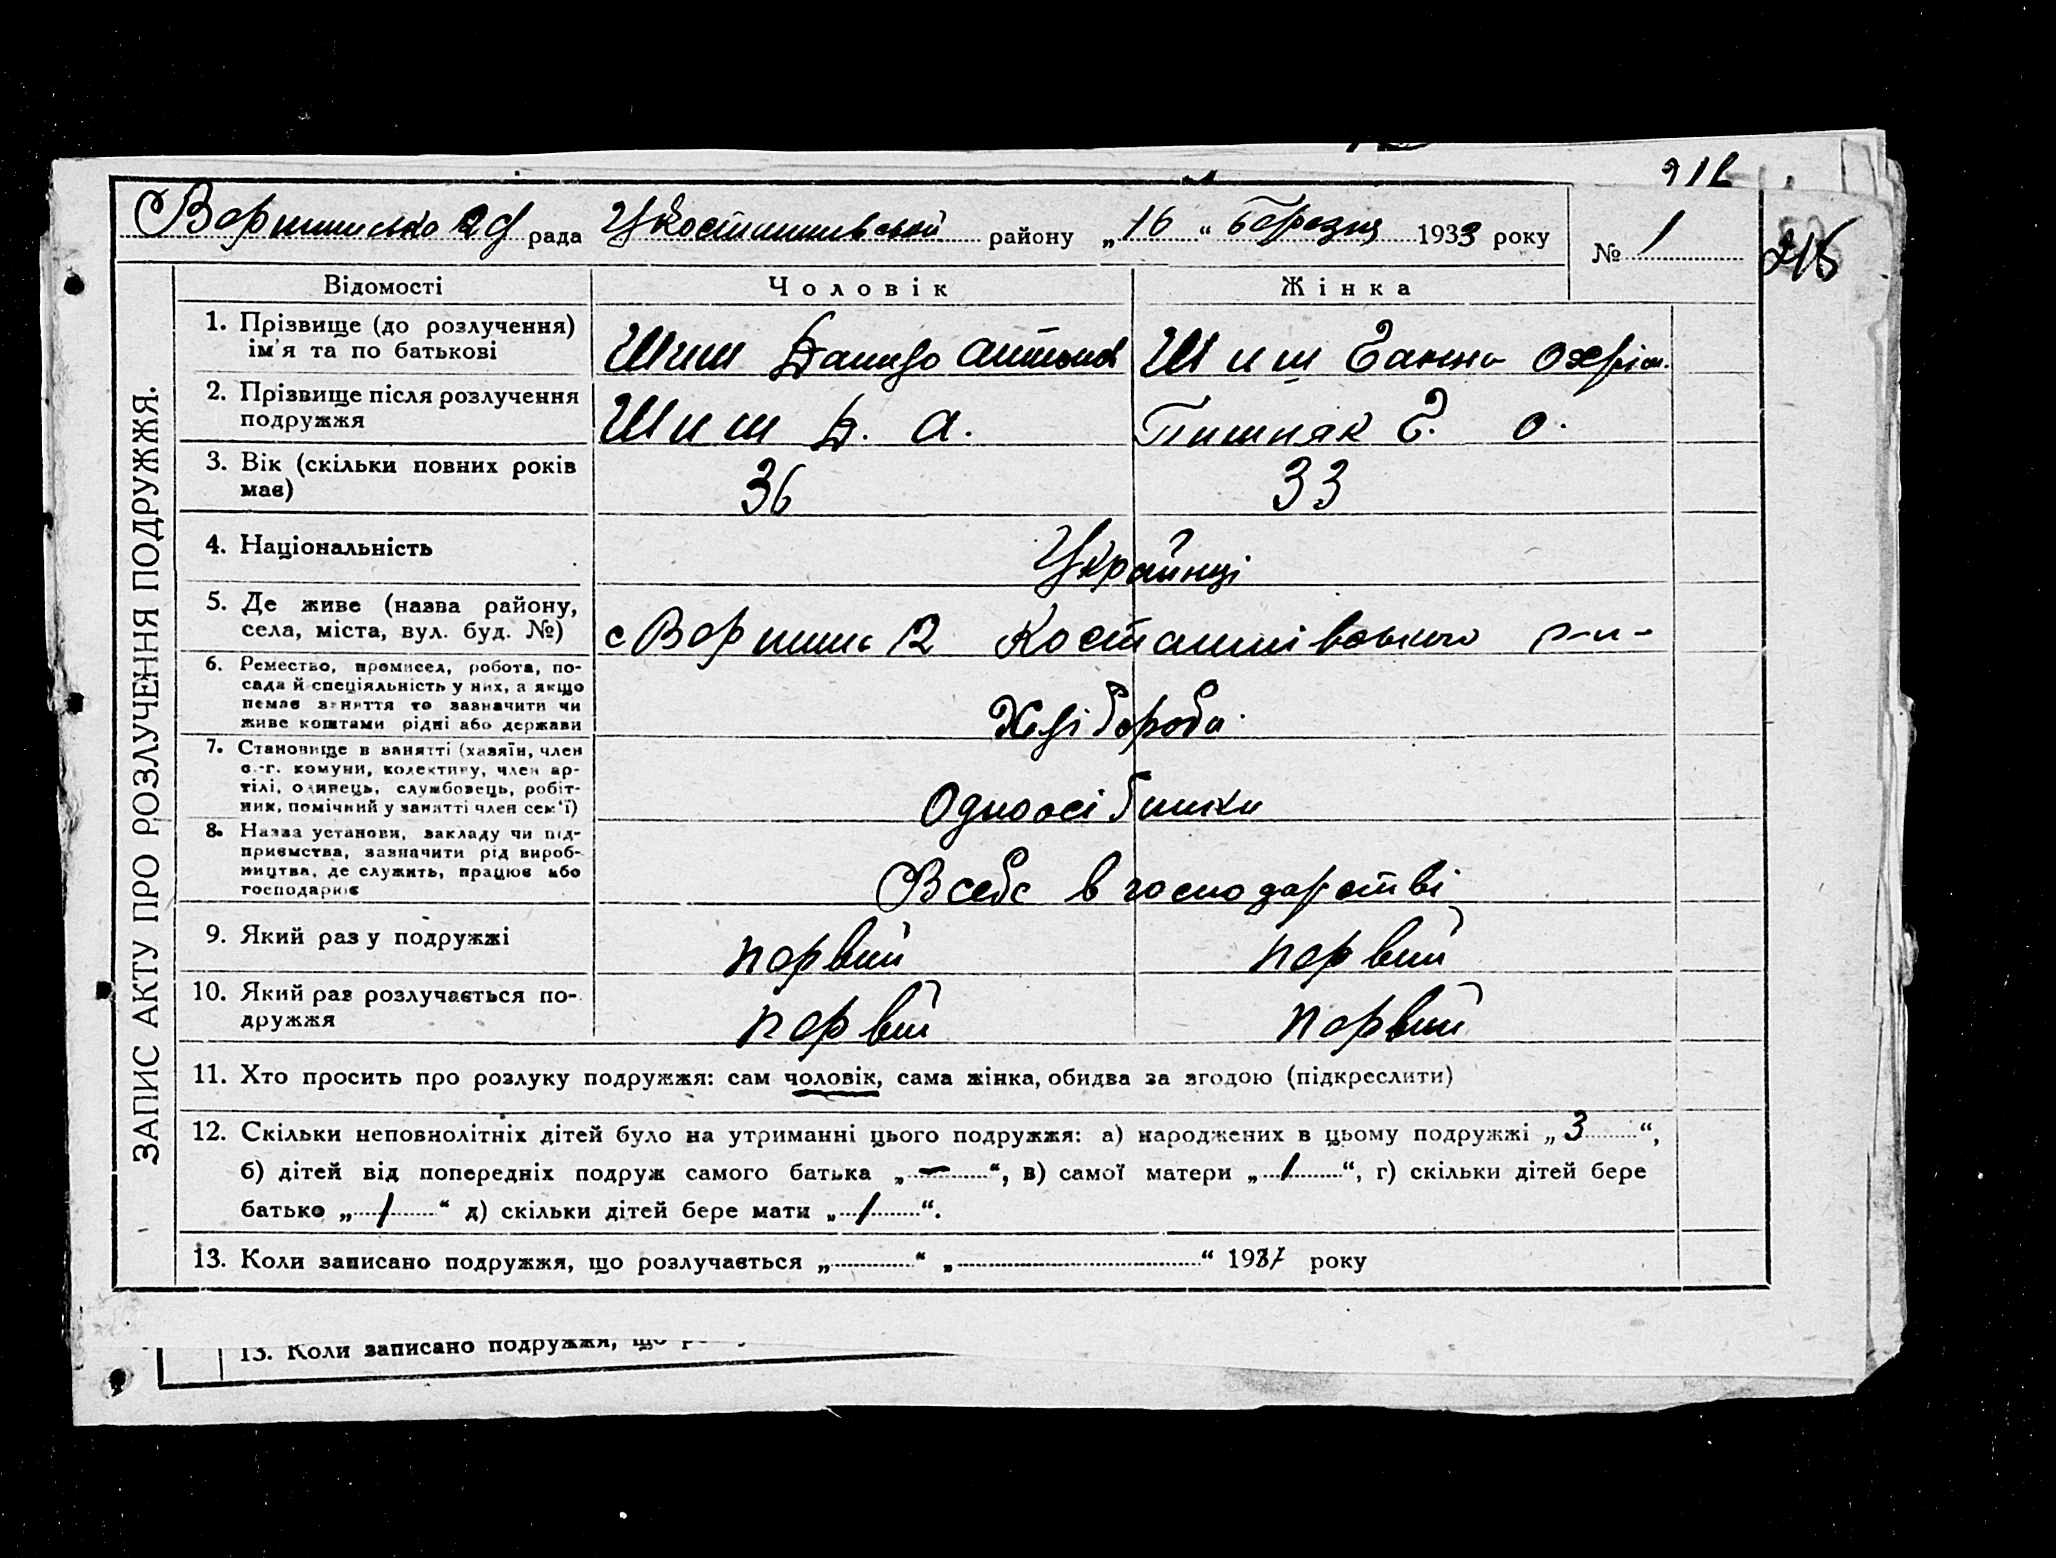 216
Воршинсько 2я рада Костянтинівський району „16“ березня 1933 року № 1
216
ЗАПИС АКТУ ПРО РОЗЛУЧЕННЯ ПОДРУЖЖЯ.
Відомості Чоловік Жінка
1. Прізвище (до розлучення) ім'я та по батькові
Шиш Данидо Антонов Шиш Ганна Охрім.
2. Прізвище після розлучення подружжя
Шиш Д. А. Пишняк Г. О.
3. Вік (скільки повних років має)
36 33
4. Національність
Українці
5. Де живе (назва району, села, міста, вул. буд. №)
с Р-н-
6. Ремество, промисел, робота, по-
сада й спеціяльність у них, а якщо
немає заняття то зазначити чи
живе коштами рідні або держави
Хлібороби.
7. Становище в занятті (хазяїн, член
с.-г. комуни, колективу, член ар-
тілі, одинець, службовець, робіт-
ник, помічний у занятті член сем'ї)
Одноосібники
8. Назва установи, закладу чи під-
приємства, зазначити рід вироб-
ництва, де служить, працює або
господарює
В себе в господарстві
9. Який раз у подружжі
первий первий
10. Який раз розлучається по-
дружжя
первий первий
11. Хто просить про розлуку подружжя: сам чоловік, сама жінка, обидва за згодою (підкреслити)
12. Скільки неповнолітніх дітей було на утриманні цього подружжя: а) народжених в цьому подружжі „3“,
б) дітей від попередніх подруж самого батька „—“, в) самої матери „/“, г) скільки дітей бере
батько „/“ д) скільки дітей бере мати „/“.
13. Коли записано подружжя, що розлучається „ “ „ “ 193 року
13. Коли записано подружжя, що